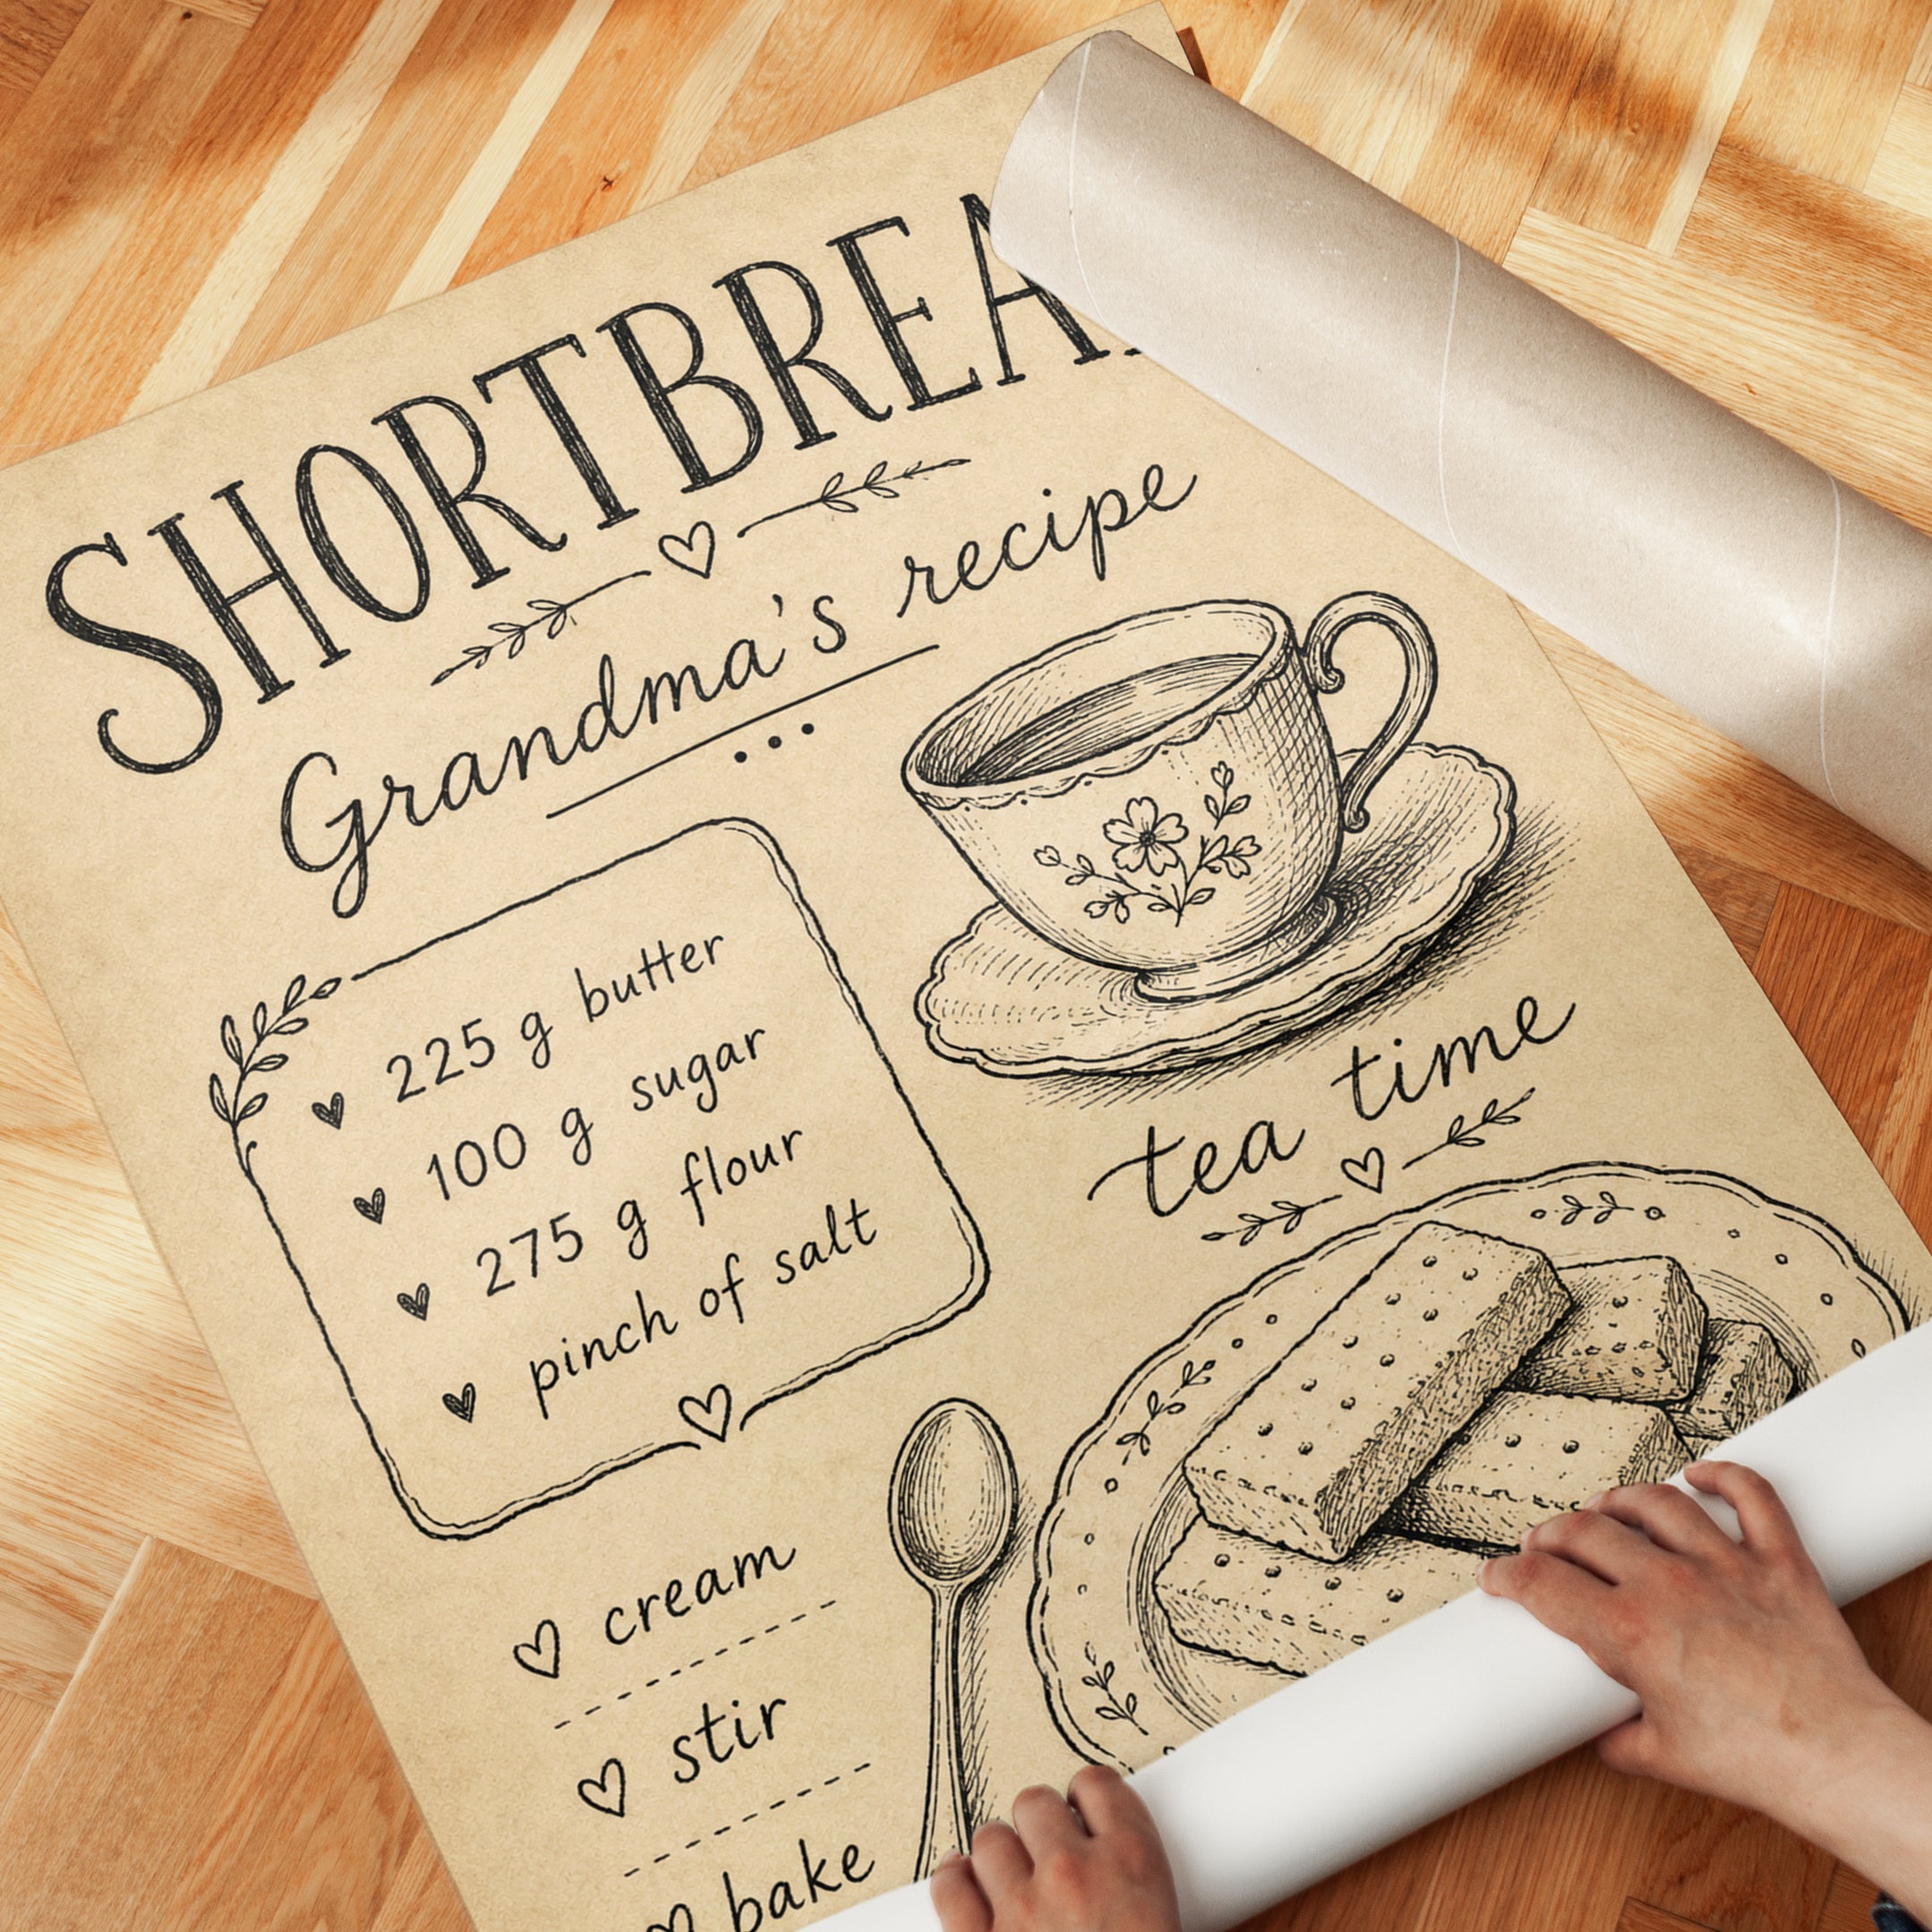 SHORTBREA
Grandma's recipe
225 g butter
100 g sugar
275 g flour
pinch of salt
tea time
cream
stir
bake